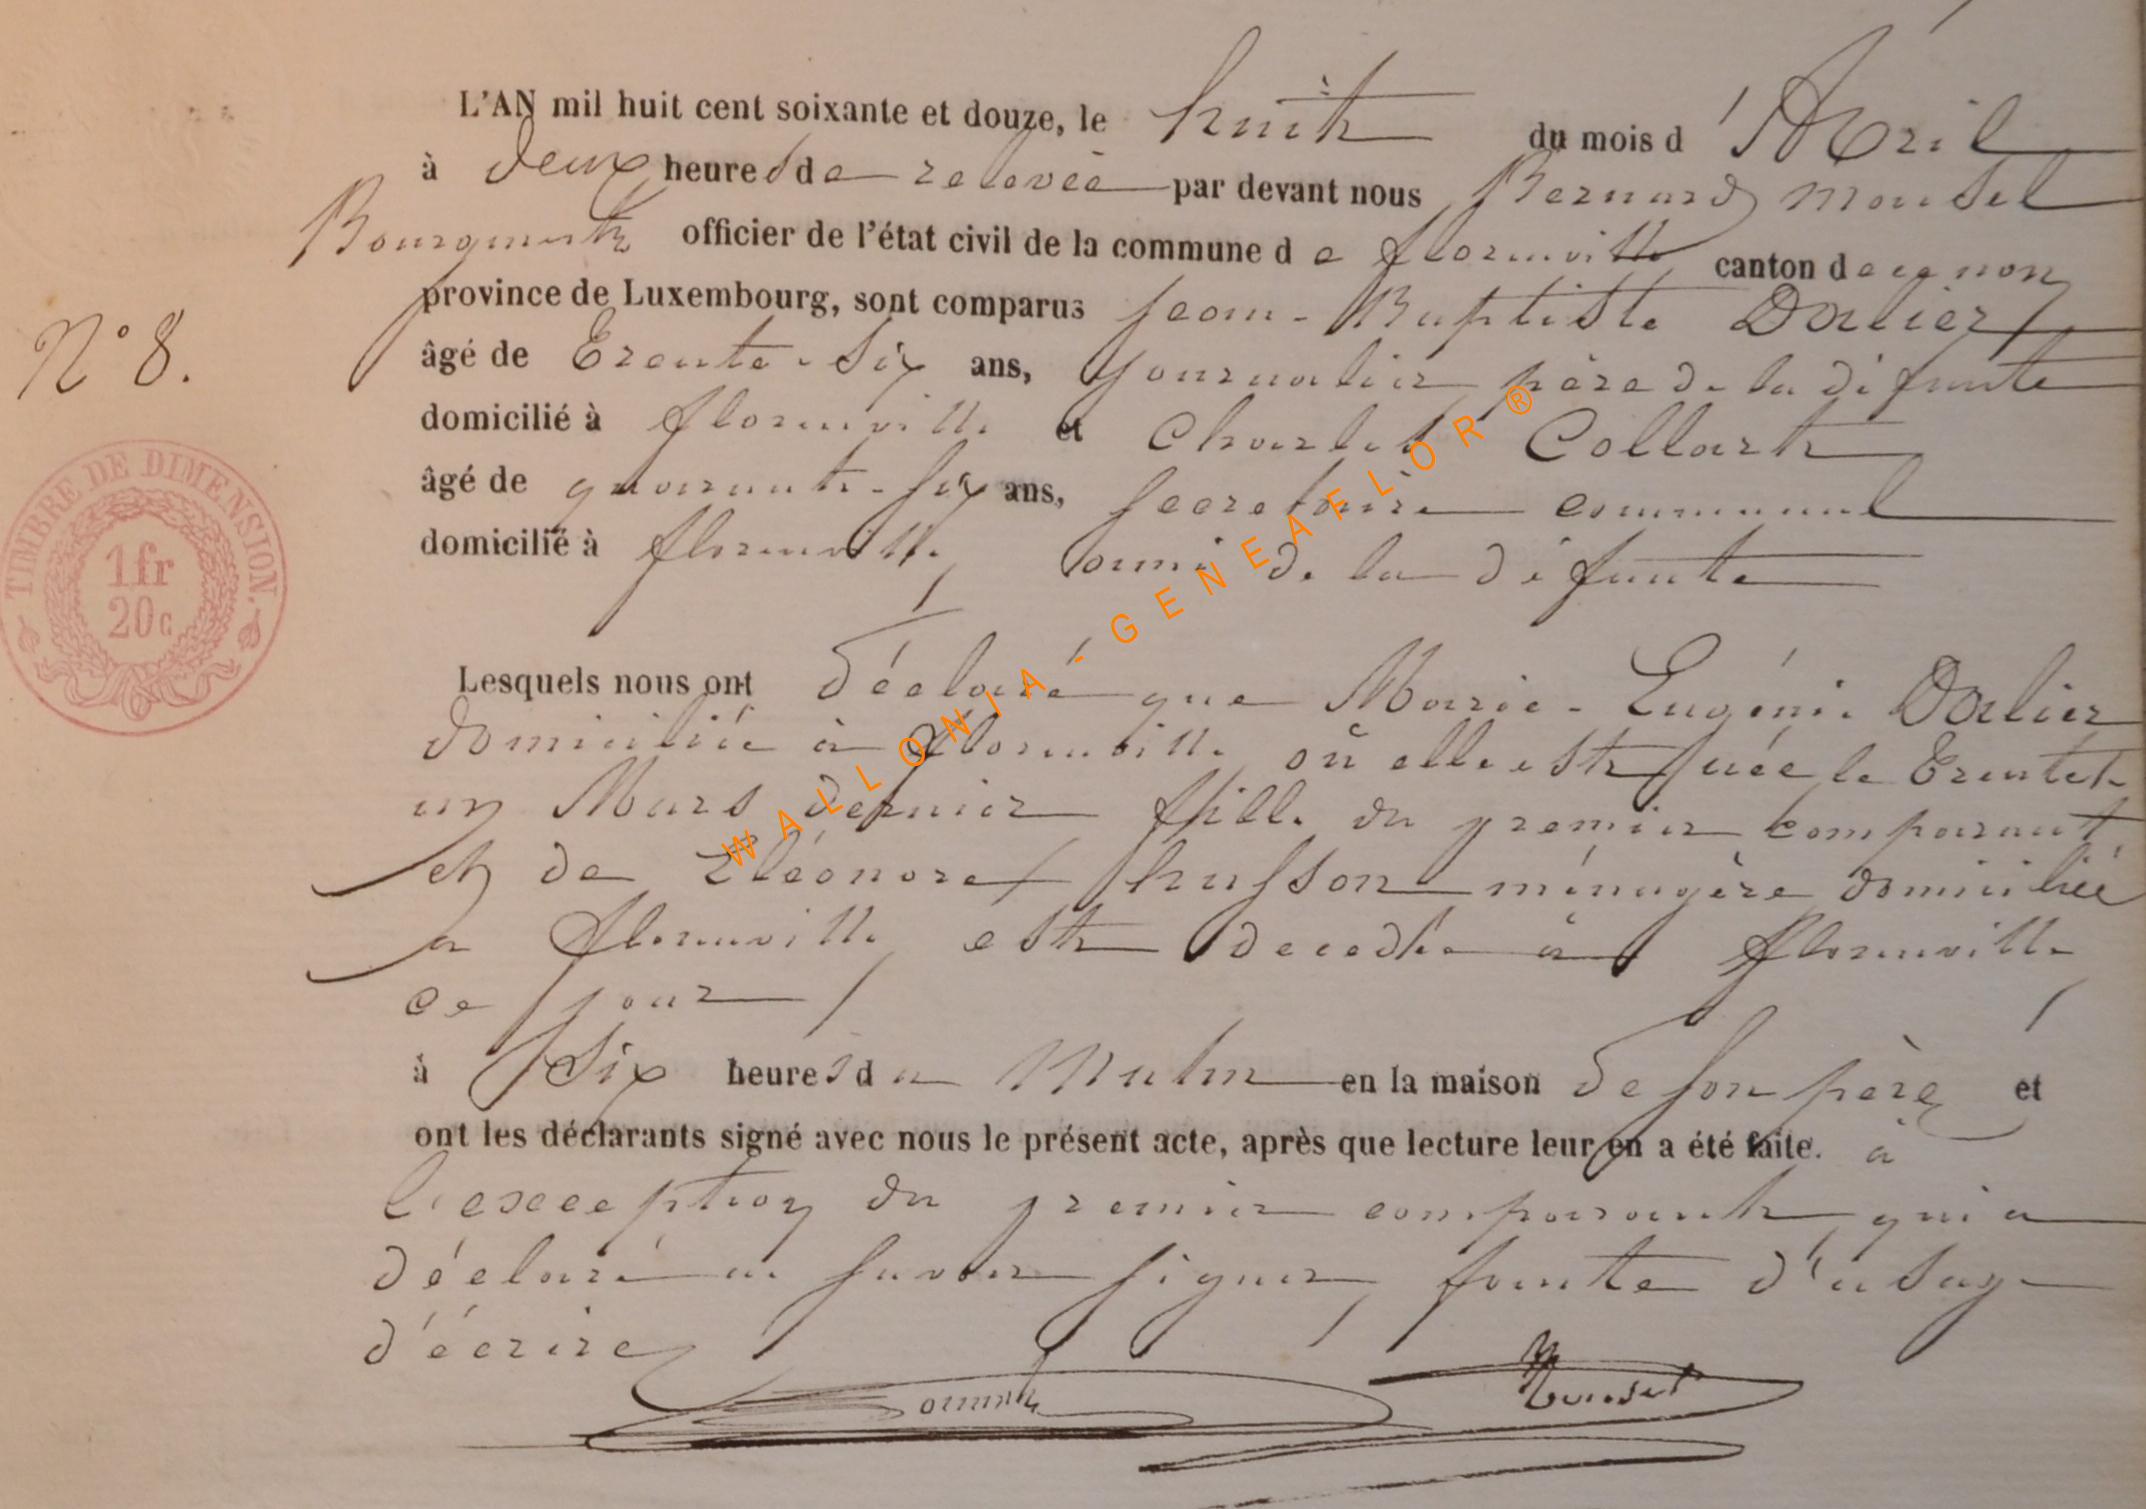 L'AN mil huit cent soixante et douze, le huit du mois d'Avril
à deux heures de relevée par devant nous Bernard Mousel
Bourgmestre officier de l'état civil de la commune de florenville canton de
province de Luxembourg, sont comparus Jean-Baptiste Dalier
N° 8.
âgé de Trente-Six ans, Journalier père de la défunte
domicilié à florenville et Charles Collart
âgé de quarante-six ans, Secrétaire communal
domicilié à florenville ami de la défunte
TIMBRE DE DIMENSION.
1 fr
20 c
Lesquels nous ont déclaré que Marie-Eugénie Dalier
domiciliée à florenville où elle est née le Trente et
un Mars dernier fille du premier comparant
et de Eléonore husson ménagère domiciliée
a florenville est decedée à florenville
ce jour
à Six heures du Matin en la maison de son père et
ont les déclarants signé avec nous le présent acte, après que lecture leur en a été faite. à
l'exception du premier comparant qui a
déclaré ne savoir signer faute d'usage
d'écrire
WALLONIA-GENEAFLOR®